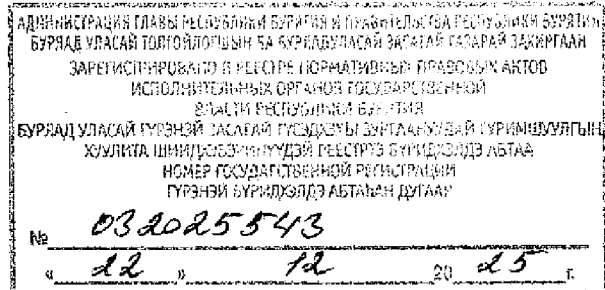 АДМИНИСТРАЦИЯ ГЛАВЫ РЕСПУБЛИКИ БУРЯТИЯ И ПРАВИТЕЛЬСТВА РЕСПУБЛИКИ БУРЯТИЯ
БУРЯАД УЛАСАЙ ТОЛГОЙЛОГШЫН БА БУРЯАД УЛАСАЙ ЗАСАГАЙ ГАЗАРАЙ ЗАХИРГААН
ЗАРЕГИСТРИРОВАНО В РЕЕСТРЕ НОРМАТИВНЫХ ПРАВОВЫХ АКТОВ
ИСПОЛНИТЕЛЬНЫХ ОРГАНОВ ГОСУДАРСТВЕННОЙ
ВЛАСТИ РЕСПУБЛИКИ БУРЯТИЯ
БУРЯАД УЛАСАЙ ГҮРЭНЭЙ ЗАСАГАЙ ЗУРГААНУУДАЙ ГУРИМШУУЛГЫН
ХУУЛИТА РЕЕСТРТЭ БҮРИДХЭЛДЭ АБТАА
НОМЕР ГОСУДАРСТВЕННОЙ РЕГИСТРАЦИИ
ГҮРЭНЭЙ БҮРИДХЭЛДЭ АБТАҺАН ДУГААР
№ 032025543
« 22 » 12 20 25 г.